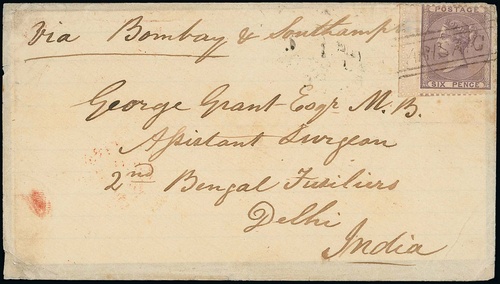 via Bombay & Southampt
POSTAGE
SIX PENCE
George Grant Esqr M.B.
Assistant Surgeon
2nd Bengal Fusiliers
Delhi
India